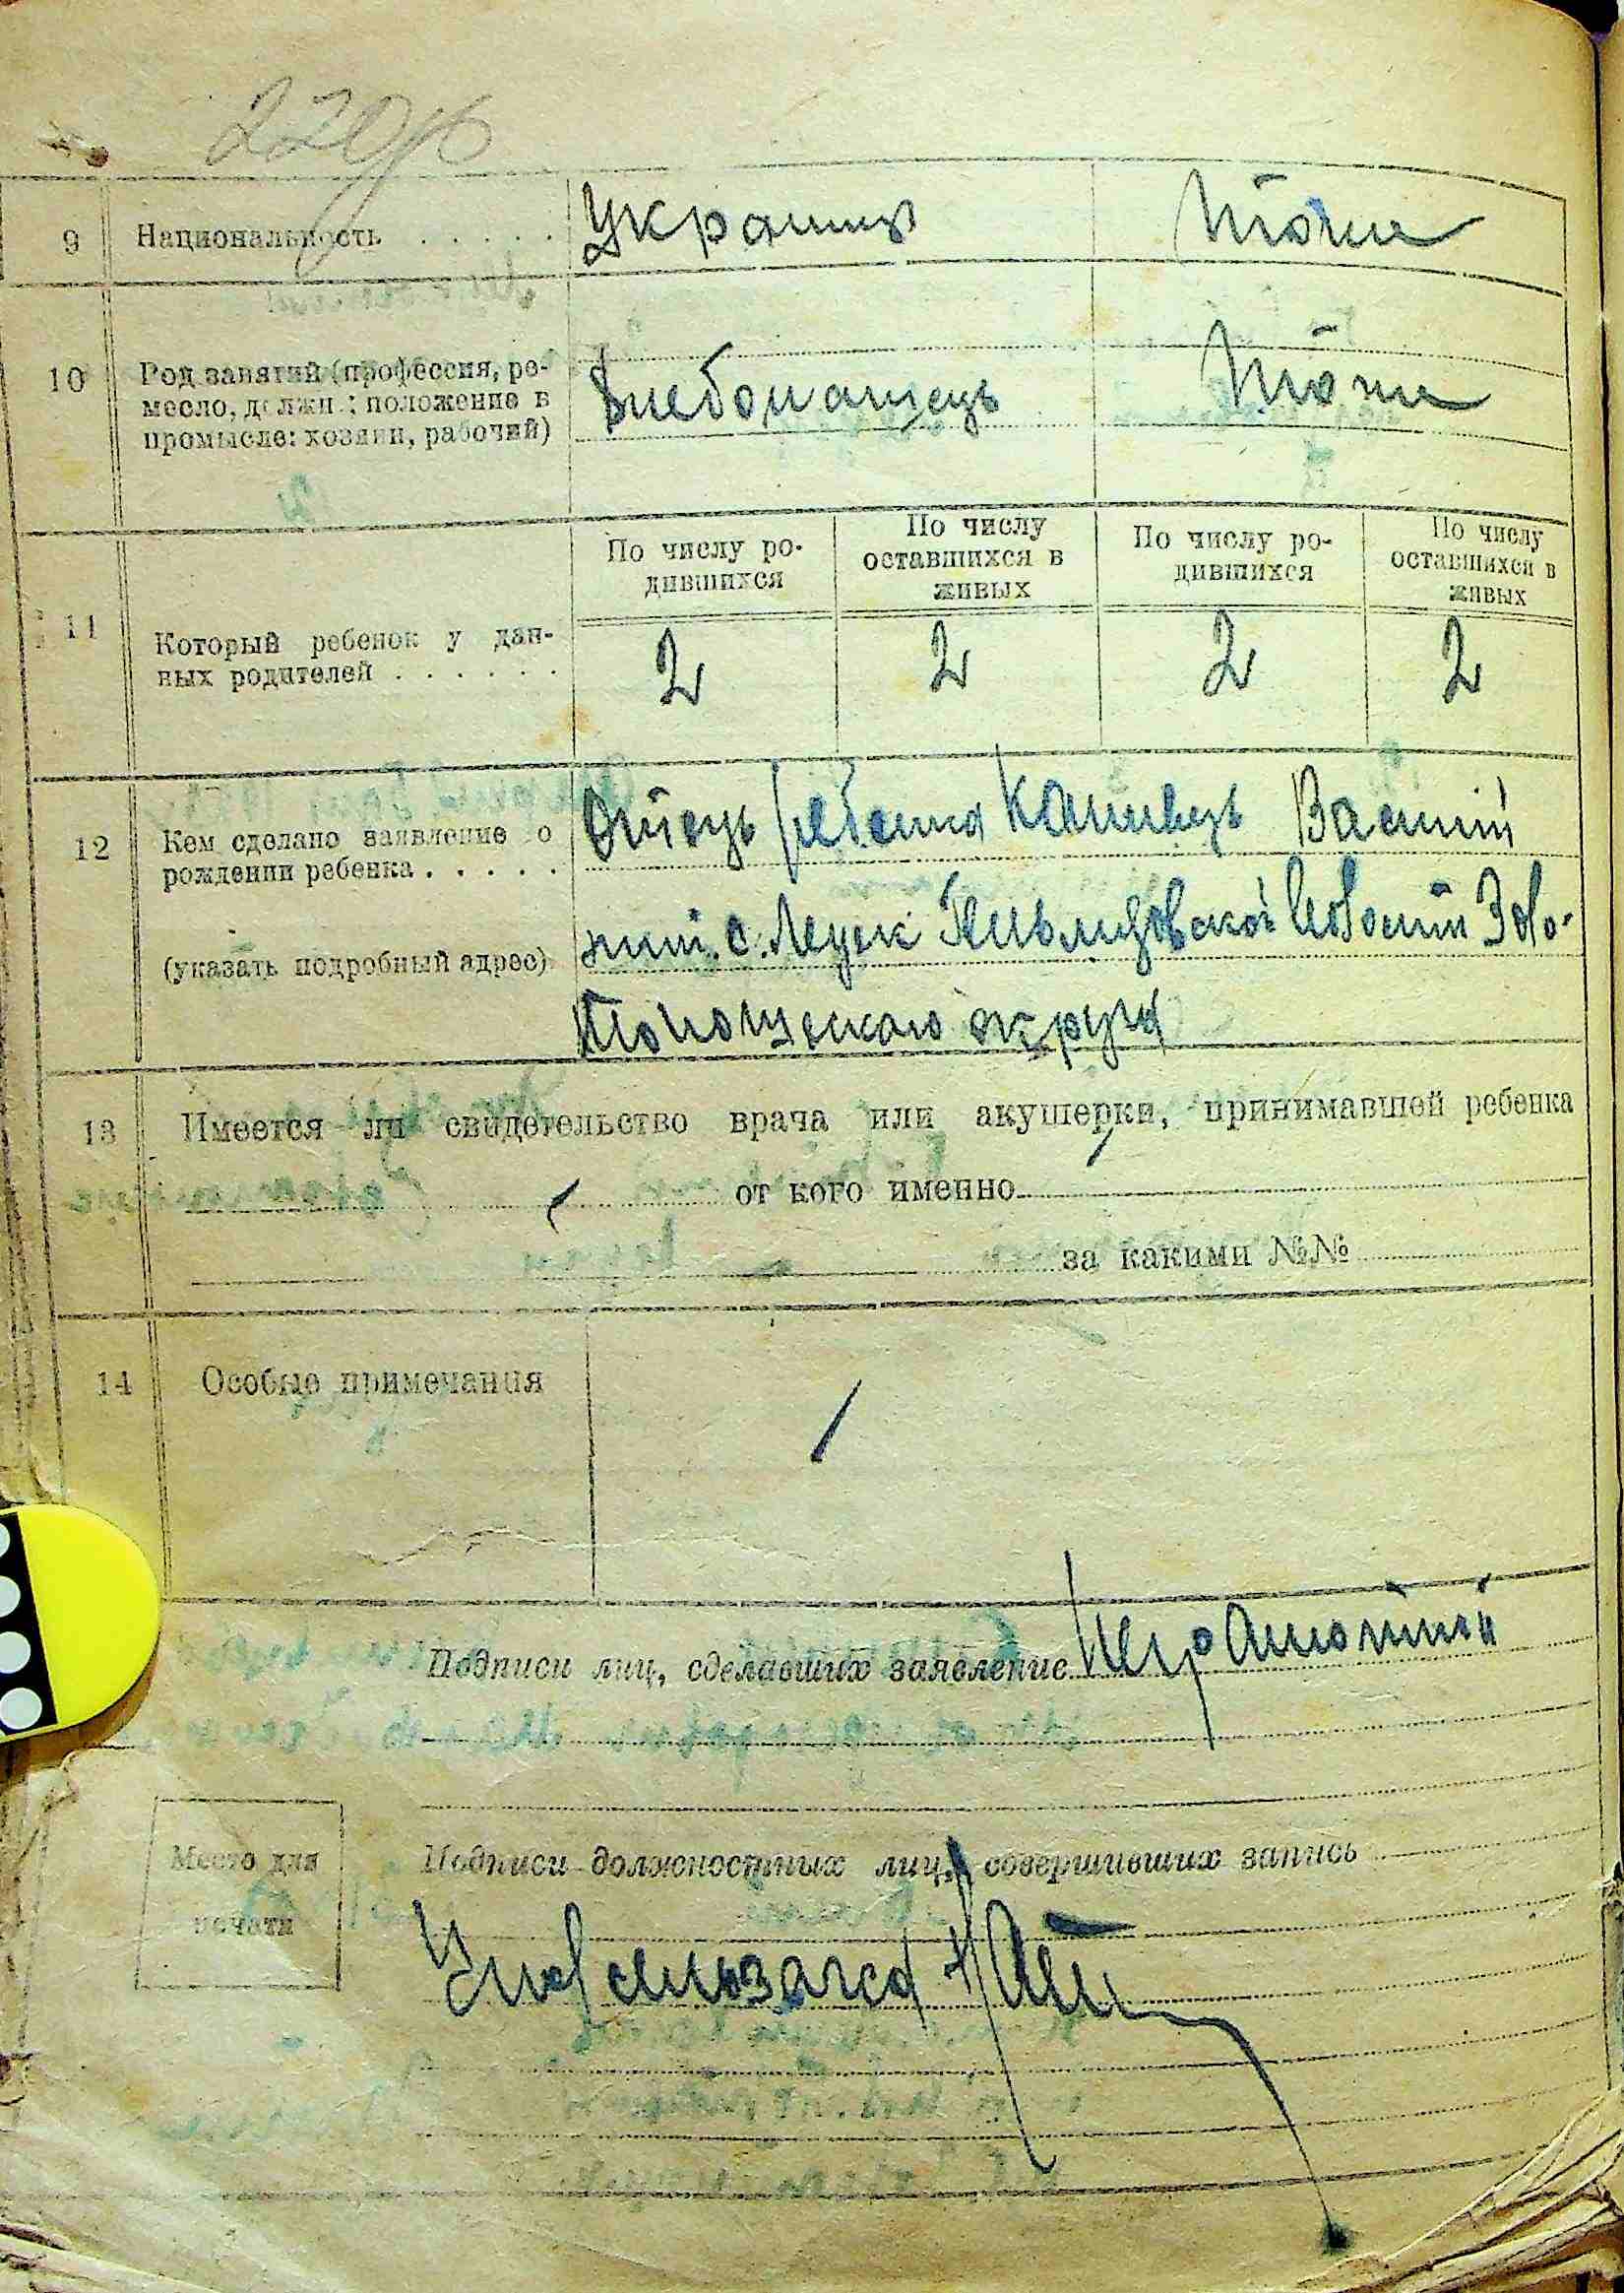 9 Национальность . . . . . Украинц Тоже
10 Род занятий (профессия, ре-
месло, должн.; положение в
промысле: хозяин, рабочий)
Хлебопашець Тоже
По числу ро-
дившихся
По числу
оставшихся в
живых
По числу ро-
дившихся
По числу
оставшихся в
живых
11 Который ребенок у дан-
ных родителей . . . . . .
2 2 2 2
12 Кем сделано заявление о
рождении ребенка . . . . .
(указать подробный адрес)
Отець ребенка Каливець Василий
жит. с. Лецк Волости Золо-
тоношского округа
13 Имеется ли свидетельство врача или акушерки, принимавшей ребенка
от кого именно
за какими №№
14 Особые примечания
Подписи лиц, сделавших заявление
Место для
печати
Подписи должностных лиц, совершивших запись